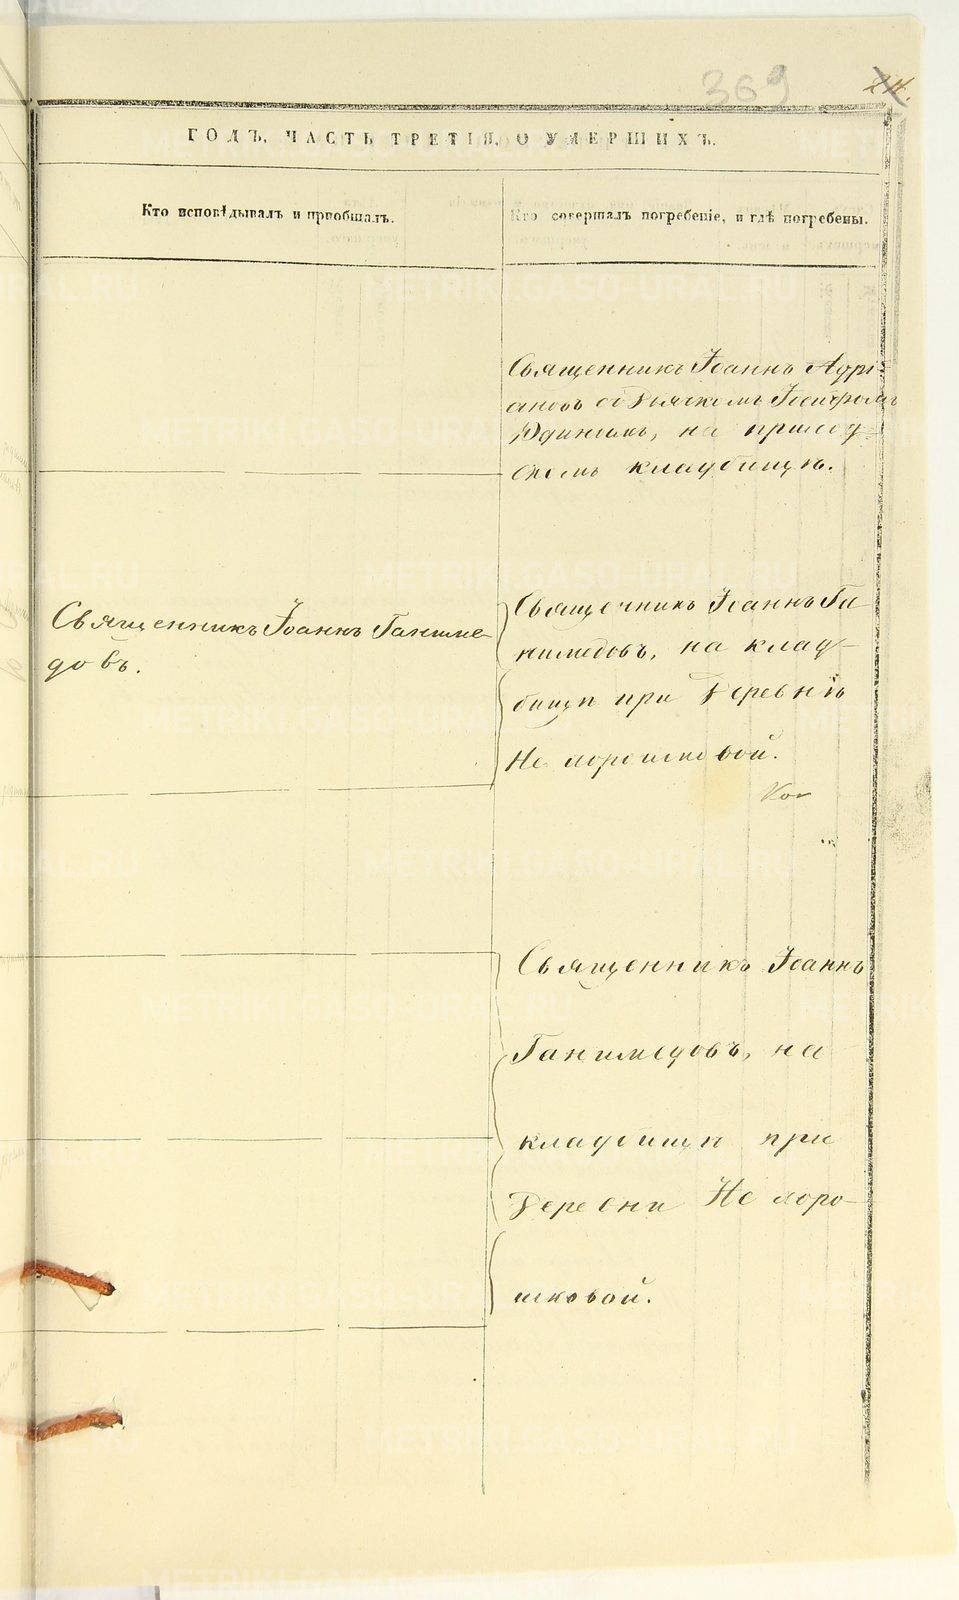 369
ГОДЪ, ЧАСТЬ ТРЕТІЯ, О УМЕРШИХЪ.
Кто исповѣдывалъ и пріобщалъ.
Кто совершалъ погребеніе, и гдѣ погребены.
Священникъ Іоаннъ Адрі-
ановъ съ Дьячкомъ
на приход-
скомъ кладбищѣ.
Священникъ Іоаннъ Ганиме-
довъ.
Священникъ Іоаннъ Га-
нимедовъ, на клад-
бищѣ при Деревнѣ
Не хорошковой.
Священникъ Іоаннъ
Ганимедовъ, на
кладбищѣ при
Деревни Не хоро-
шковой.
METRIKI.GASO-URAL.RU